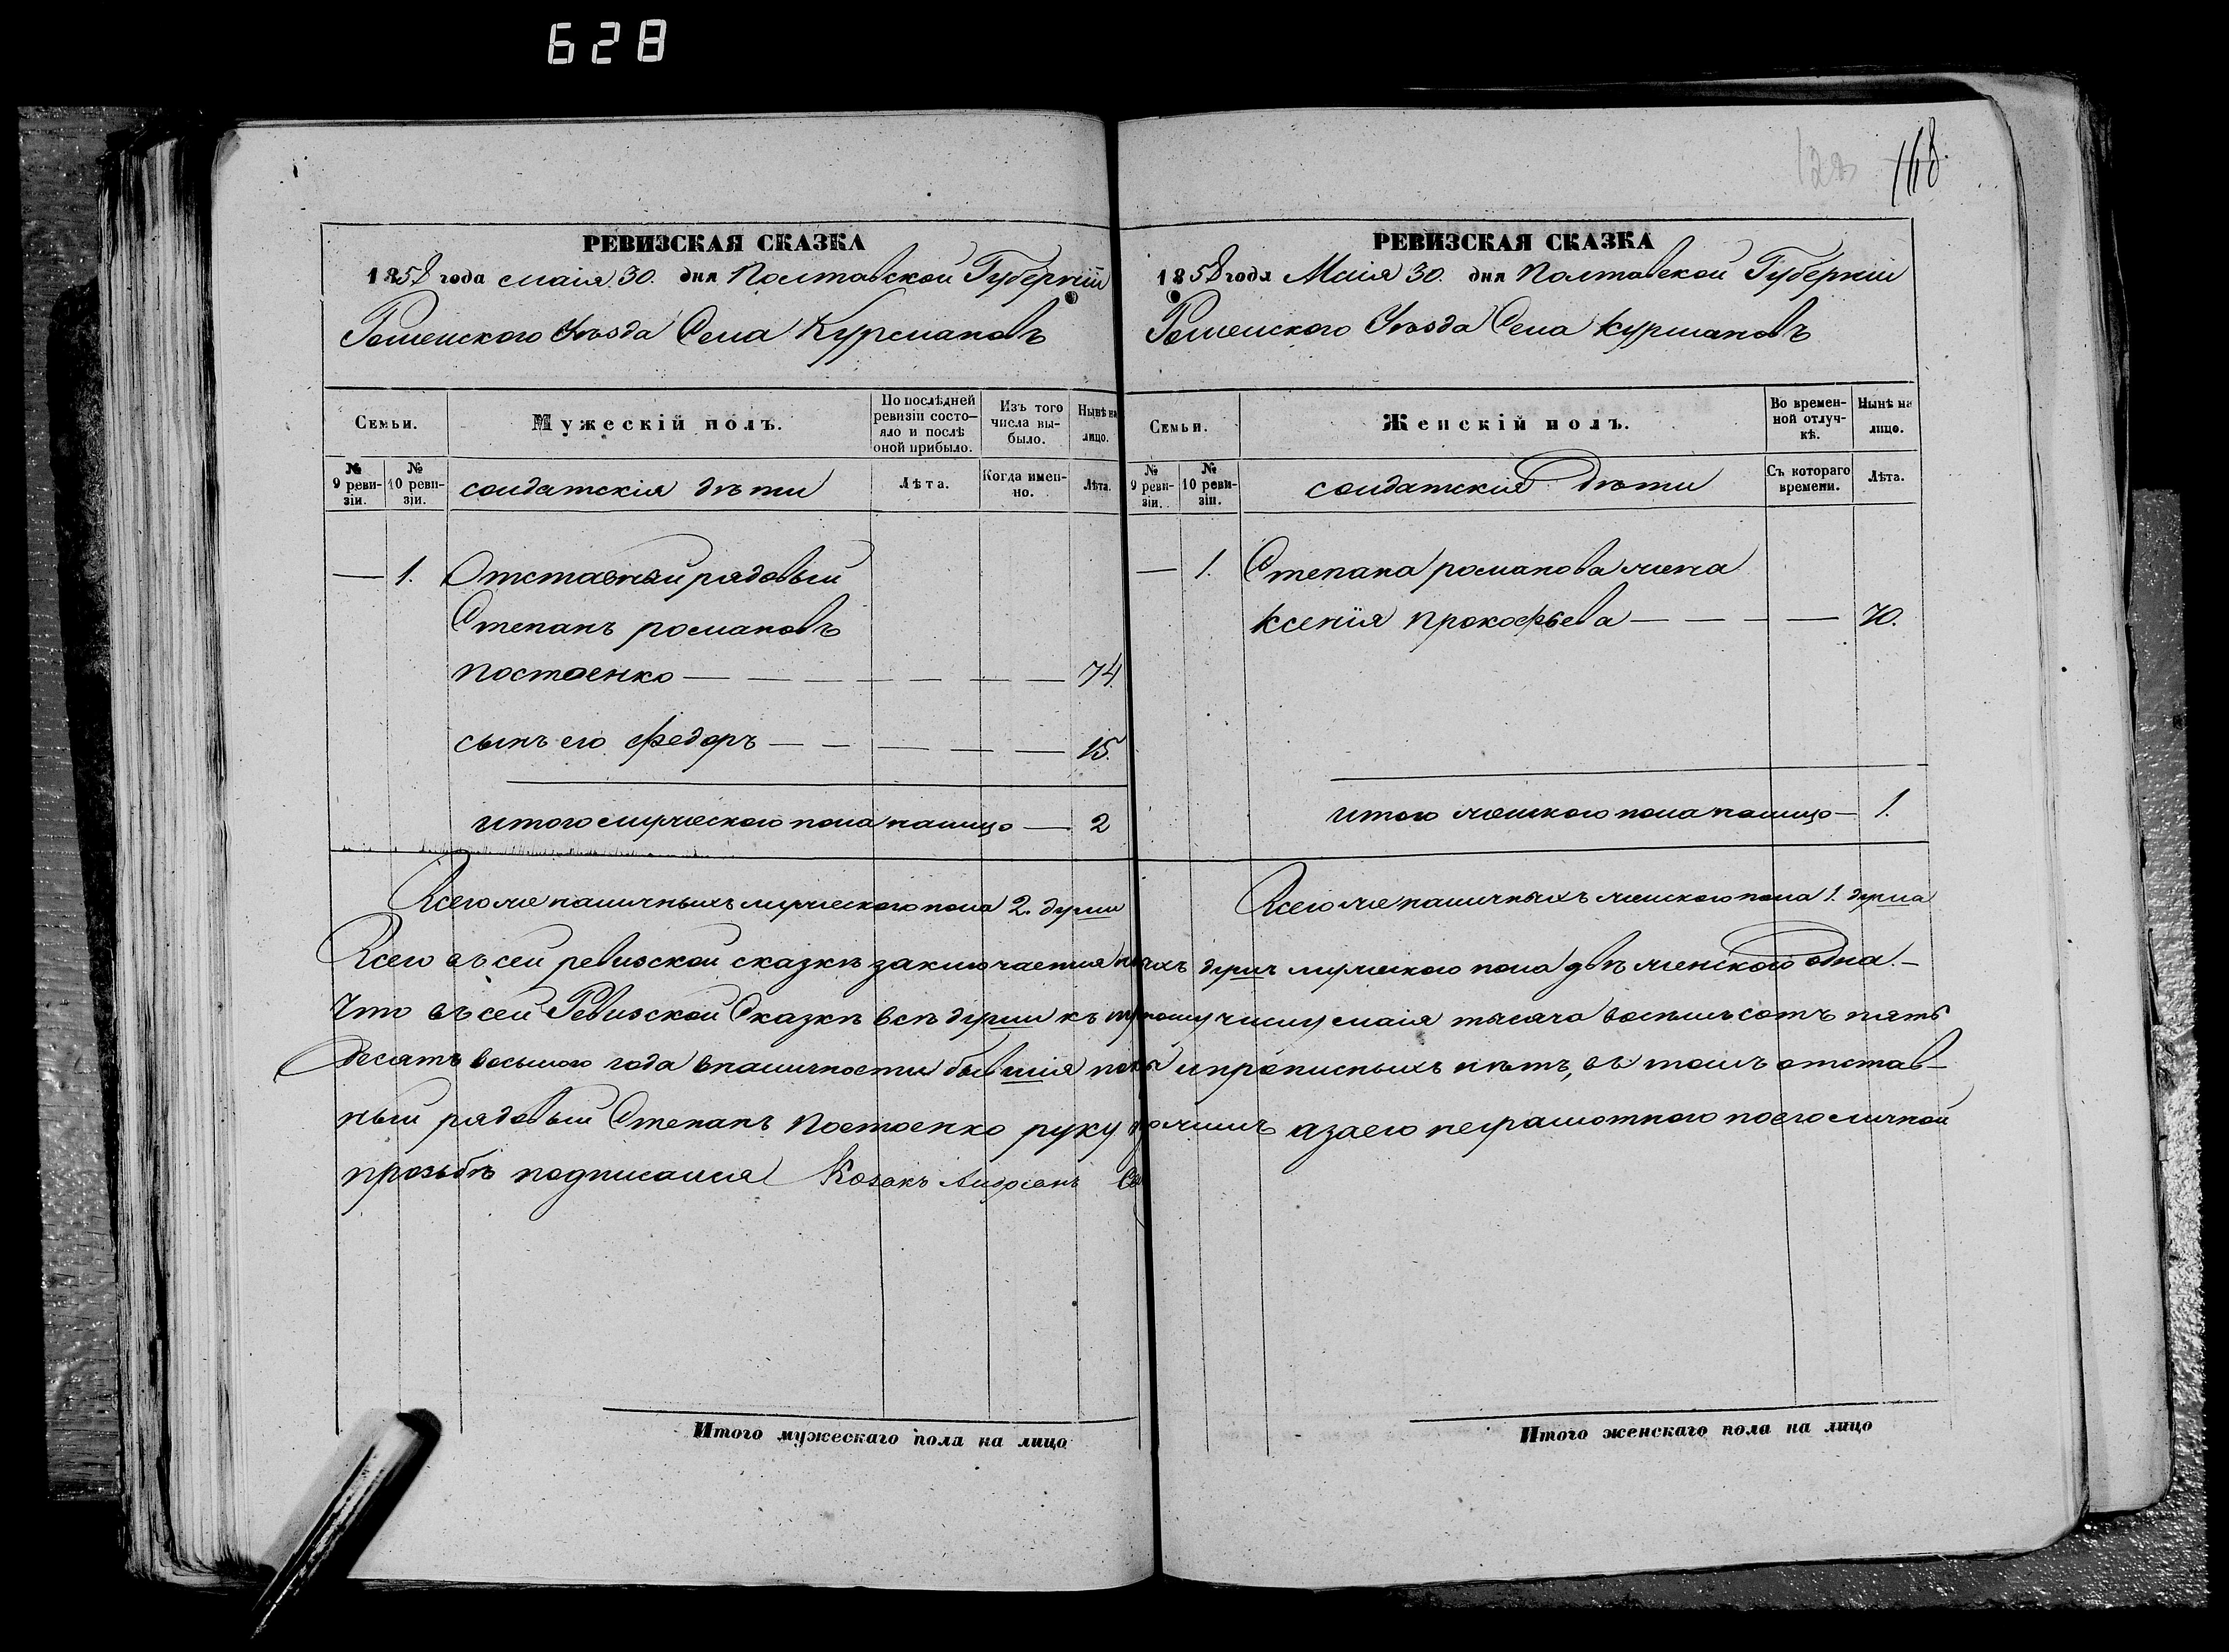 628
123 118.
РЕВИЗСКАЯ СКАЗКА
1858 года маія 30. дня Полтавской Губерніи
Роменского Уѣзда Села Курмановъ
Семьи.
Мужескій полъ.
По послѣдней ревизіи состояло и послѣ оной прибыло.
Изъ того числа выбыло.
Нынѣ на лицо.
№ 9 ревизіи.
№ 10 ревизіи.
солдатскія дѣти
Лѣта.
Когда именно.
Лѣта.
— 1. Отставный рядовый
Степанъ романовъ
постоенко — — — — — — — 74.
сынъ его федоръ — — — — — 15.
итого мужеского пола налицо — 2
Всего же наличныхъ мужеского пола 2. души
РЕВИЗСКАЯ СКАЗКА
1858 года Маія 30. дня Полтавской Губерніи
Роменского Уѣзда Села Курмановъ
Семьи.
Женскій полъ.
Во временной отлучкѣ.
Нынѣ на лицо.
№ 9 ревизіи.
№ 10 ревизіи.
солдатскія дѣти
Съ котораго времени.
Лѣта.
— 1. Степана романова жена
ксенія прокофьева — — — — 70.
итого женского пола налицо — 1.
Всего же наличныхъ женского пола 1. душа
Всего въ сей ревизской сказкѣ заключается душъ мужеского пола двѣ женского одна. —
Что въ сей Ревизской Сказкѣ всѣ души къ числу маія тысяча восемьсотъ пять
десятъ восьмого года вналичности бывшія и прописныхъ нѣтъ, въ томъ отстав—
ный рядовый Степанъ Постоенко руку а за его неграмотного по его личной
прозьбѣ подписался Козакъ Андріанъ
Итого мужескаго пола на лицо
Итого женскаго пола на лицо